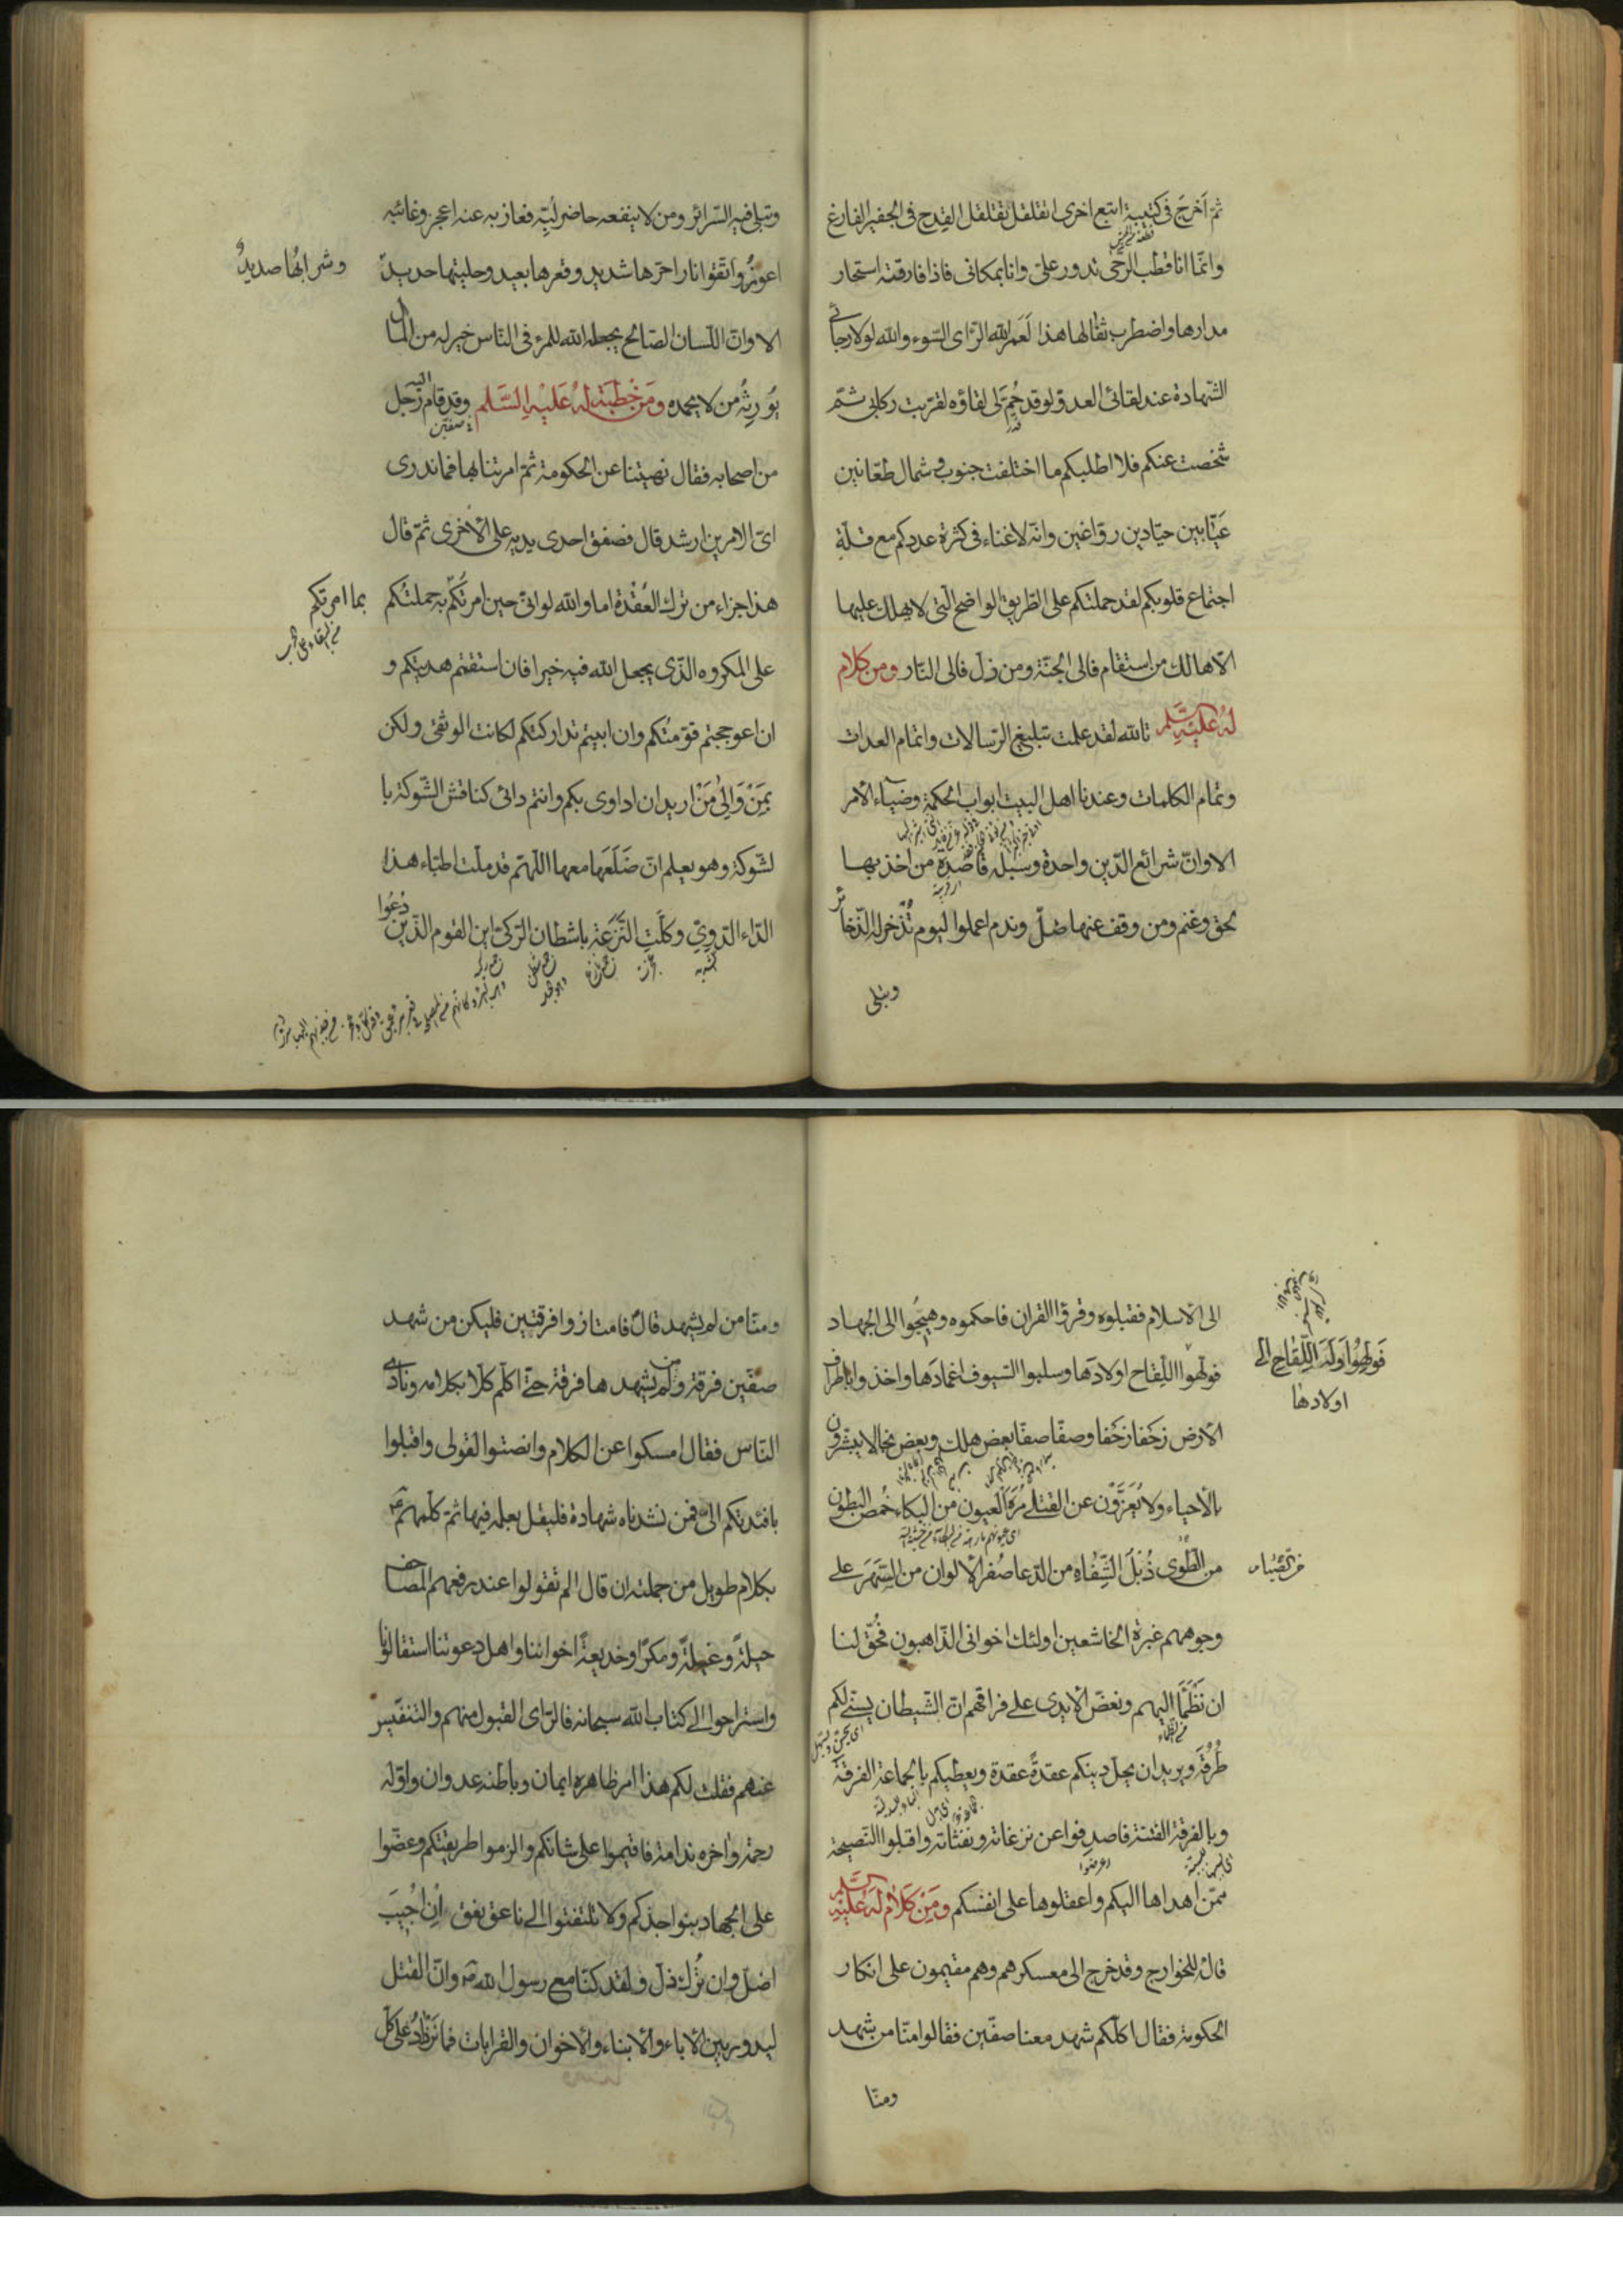 ثم اخرج فى كتيبة اتبع اخرى اتقلقل تقلقل القدح فى الجفير الفارغ
وانّما انا قطب الرحى تدور علىّ وانا بمكانى فاذا فارقته استحار
مدارها واضطرب ثفالها هذا لَعَمر الله الرّاى السّوء والله لولا رجائى
الشّهادة عند لقائى العدوّ لو قد حُمّ لى لقاؤه لقرّبت ركابى ثمّ
شخصت عنكم فلا اطلبكم ما اختلفت جنوب و شمال طعّانين
عَيّابين حيّادين روّاغين وانّه لا غناء فى كثرة عددكم مع قلّة
اجتماع قلوبكم لقد حملتكم على الطّريق الواضح الّتى لا يهلك عليها
الّا هالك من استقام فالى الجنّة ومن زلّ فالى النّار ومن كلام
لهُ عليه السّلم تالله لقد علمت تبليغ الرّسالات واتمام العدات
وتمام الكلمات وعندنا اهل البيت ابواب الحكمة وضياء الامر
الا وانّ شرائع الدّين واحدة وسُبله قاصدة من اخذ بها
لحق وغنم ومن وقف عنها ضلّ وندم اعملوا ليوم تُذّخر له الذّخائر
وتبلى
وتبلى فيه السّرائر ومن لا ينفعه حاضر لُبّه فعازبه عنه اعجز وغائبه
اعوزُ واتّقوا نارا حرّها شديد وقعرها بعيد وحليتها حديدٌ
وشرابُها صديدٌ
الا وانّ اللّسان الصّالح يجعله الله للمرء فى النّاس خير له من المال
يُورِثُه من لا يحمده ومَن خُطبَة لهُ عَليْهِ السَّلم وقد قام اليه رَجل
من اصحابه فقال نهيتنا عن الحكومة ثمّ امرتنا بها فما ندرى
اىّ الامرين ارشد قال فصفق احدى يديه على الاخرى ثمّ قال
هذا جزاء من ترك العُقْدة اما والله لو انّى حين امرتُكم به حملتُكم
بما امرتكم
على المكروه الذّى يجعل الله فيه خيرا فان استقمتم هديتكم و
ان اعوججتم قوّمتُكم وان ابيتم تداركتكم لكانت الوثقى ولكن
بِمَنْ وَالِىْ مَنْ اريد ان اداوى بكم وانتم دائى كناقش الشّوكة با
لشّوكة وهو يعلم انّ ضَلَعَها معها اللّهمّ قد ملّت اطبّاء هذا
الدّاء الدّوِىّ وكلّتِ النَّزَعَة باشطان الرّكىّ اين القوم الذّين دُعُوا
الى الاسلام فقبلوه وقرؤا القران فاحكموه وهِيجُوا الى الجهاد
فولّهوا اللّقاح اولادَها وسلبوا السّيوف اغمادَها واخذوا باطراف
فَولّهُوا وَلَهَ اللِّقَاحِ الى
اولادها
الارض زحفا زحفا وصفّا صفّا بعض هلك وبعض نجا لا يبشّرون
بالاحياء ولا يُعَزَّوْن عن القتلى مُرْهُ العيون من البكاء خُمص البطون
من الطّوى ذُبْلَ الشّفاهِ من الدّعا صُفر الالوان من السَّهَرِ على
وجوههم غبرة الخاشعين اولئك اخوانى الذّاهبون فحُقّ لنا
ان نَظْمَأ اليهم ونعضّ الايدى على فراقهم انّ الشّيطان يسنّى لكم
طُرُقَه ويريد ان يحلّ دينكم عقدةً عقدة ويعطيكم بالجماعة الفرقة
وبالفرقة الفتنة فاصدفوا عن نزغاته ونفثاته واقبلوا النّصيحة
ممّن اهداها اليكم واعقلوها على انفسكم ومن كَلام لهُ عليْهِ السَّلم
قالهُ للخوارج وقد خرج الى معسكرهم وهم مقيمون على انكار
الحكومة فقال اكلّكم شهد معنا صفّين فقالوا منّا من شهد
ومنّا
ومنّا من لم يشهد قال فامتازوا فرقتين فليكن من شهد
صفّين فرقة ومن لم يشهدها فرقة حتّى اكلّم كلّا بكلامه ونادى
النّاس فقال امسكوا عن الكلام وانصتوا لقولى واقبلوا
بافئدتكم الىّ فمن نشدناه شهادة فليقل بعلمه فيها ثمّ كلّمهم ع
بكلام طويل من جملته ان قال الم تقولوا عند رفعهم المصاحف
حيلةً وغيلةً ومكرًا وخديعةً اخواننا واهل دعوتنا استقالونا
واستراحوا الى كتاب الله سبحانه فالرّاى القبول منهم والتنفيس
عنهم فقلت لكم هذا امر ظاهره ايمان وباطنه عدوان واوّله
رحمة واخره ندامة فاقيموا على شانكم والزموا طريقتكم وعضّوا
على الجهاد بنواجذكم ولا تلتفتوا الى ناعق نعق اِنْ اُجيبَ
اضلّ وان تُرك ذلّ ولقد كنّا مع رسول الله ص وانّ القتل
ليدور بين الاباء والابناء والاخوان والقرابات فما نَزْدَادُ على كلّ